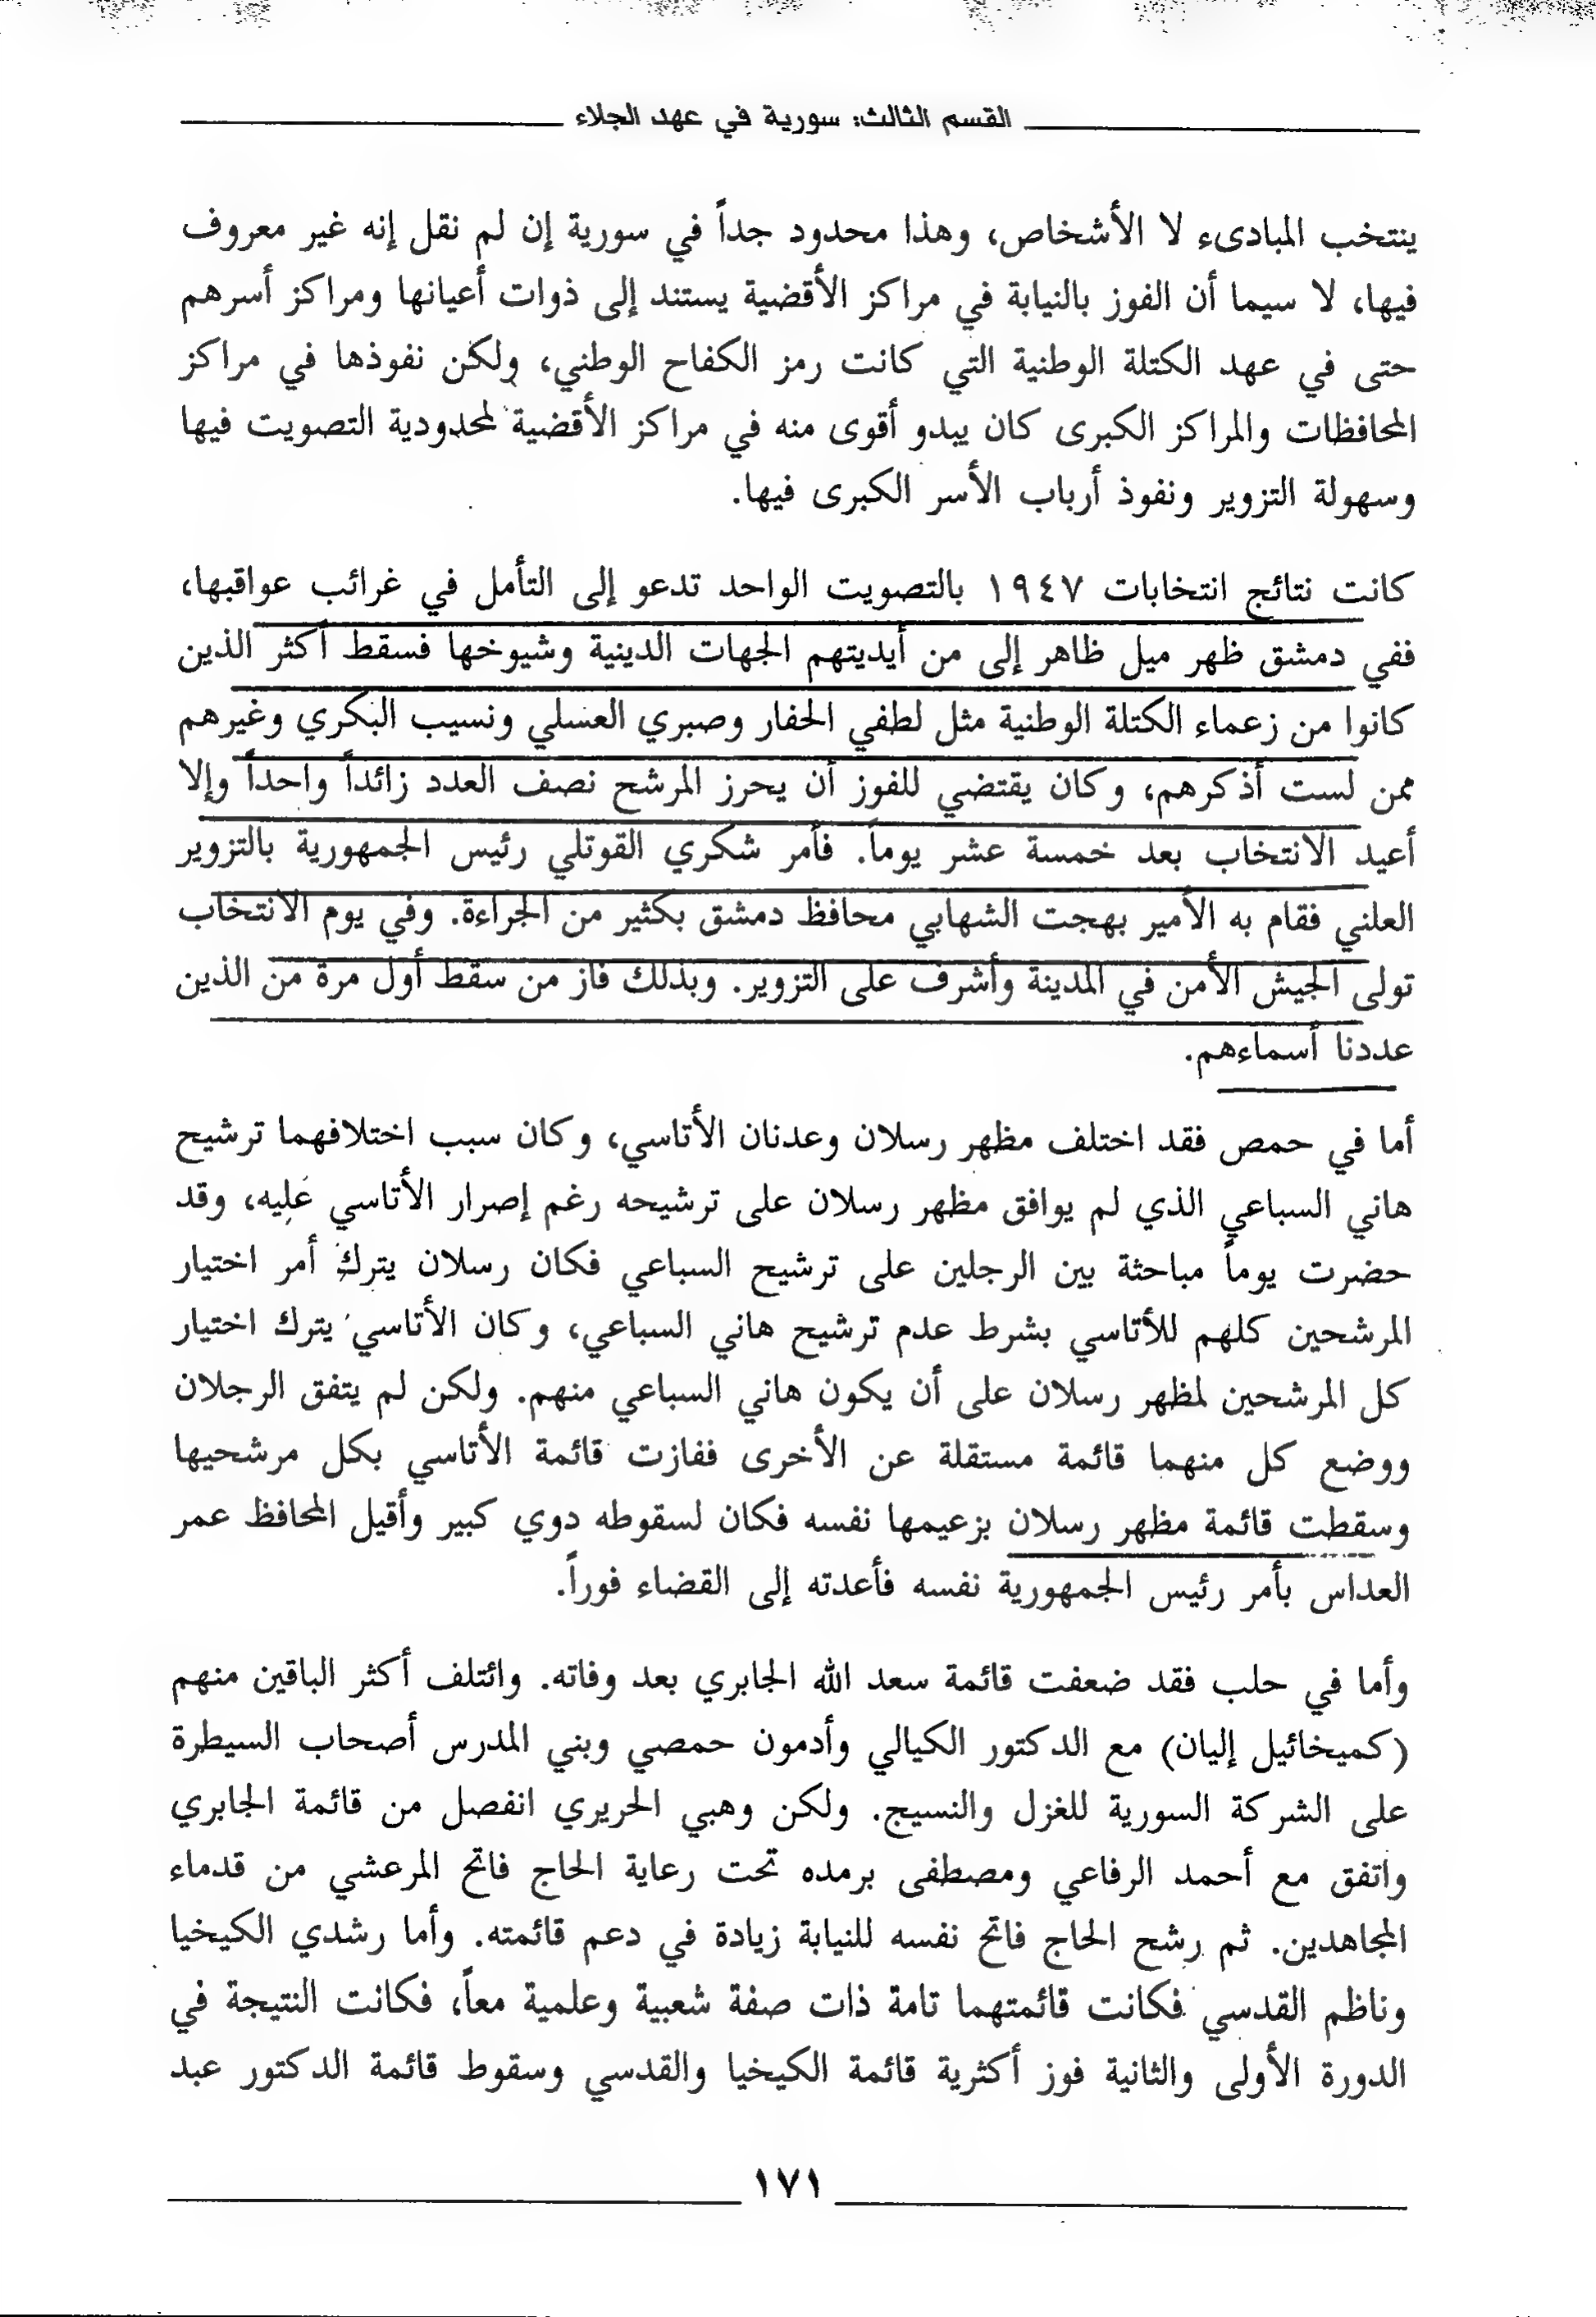 القسم الثالث: سورية في عهد الجلاء
ينتخب المبادىء لا الأشخاص، وهذا محدود جداً في سورية إن لم نقل إنه غير معروف
فيها، لا سيما أن الفوز بالنيابة في مراكز الأقضية يستند إلى ذوات أعيانها ومراكز أسرهم
حتى في عهد الكتلة الوطنية التي كانت رمز الكفاح الوطني، ولكن نفوذها في مراكز
المحافظات والمراكز الكبرى كان يبدو أقوى منه في مراكز الأقضية لمحدودية التصويت فيها
وسهولة التزوير ونفوذ أرباب الأسر الكبرى فيها.
كانت نتائج انتخابات ١٩٤٧ بالتصويت الواحد تدعو إلى التأمل في غرائب عواقبها،
ففي دمشق ظهر ميل ظاهر إلى من أيديتهم الجهات الدينية وشيوخها فسقط أكثر الذين
كانوا من زعماء الكتلة الوطنية مثل لطفي الحفار وصبري العسلي ونسيب البكري وغيرهم
ممن لست أذكرهم، وكان يقتضي للفوز أن يحرز المرشح نصف العدد زائداً واحداً وإلا
أعيد الانتخاب بعد خمسة عشر يوماً. فأمر شكري القوتلي رئيس الجمهورية بالتزوير
العلني فقام به الأمير بهجت الشهابي محافظ دمشق بكثير من الجراءة. وفي يوم الانتخاب
تولى الجيش الأمن في المدينة وأشرف على التزوير. وبذلك فاز من سقط أول مرة من الذين
عددنا أسماءهم.
أما في حمص فقد اختلف مظهر رسلان وعدنان الأتاسي، وكان سبب اختلافهما ترشيح
هاني السباعي الذي لم يوافق مظهر رسلان على ترشيحه رغم إصرار الأتاسي عليه، وقد
حضرت يوماً مباحثة بين الرجلين على ترشيح السباعي فكان رسلان يترك أمر اختيار
المرشحين كلهم للأتاسي بشرط عدم ترشيح هاني السباعي، وكان الأتاسي يترك اختيار
كل المرشحين لمظهر رسلان على أن يكون هاني السباعي منهم. ولكن لم يتفق الرجلان
ووضع كل منهما قائمة مستقلة عن الأخرى ففازت قائمة الأتاسي بكل مرشحيها
وسقطت قائمة مظهر رسلان بزعيمها نفسه فكان لسقوطه دوي كبير وأقيل المحافظ عمر
العداس بأمر رئيس الجمهورية نفسه فأعدته إلى القضاء فوراً.
وأما في حلب فقد ضعفت قائمة سعد الله الجابري بعد وفاته. وائتلف أكثر الباقين منهم
(كميخائيل إليان) مع الدكتور الكيالي وأدمون حمصي وبني المدرس أصحاب السيطرة
على الشركة السورية للغزل والنسيج. ولكن وهبي الحريري انفصل من قائمة الجابري
واتفق مع أحمد الرفاعي ومصطفى برمده تحت رعاية الحاج فاتح المرعشي من قدماء
المجاهدين. ثم رشح الحاج فاتح نفسه للنيابة زيادة في دعم قائمته. وأما رشدي الكيخيا
وناظم القدسي فكانت قائمتهما تامة ذات صفة شعبية وعلمية معاً، فكانت النتيجة في
الدورة الأولى والثانية فوز أكثرية قائمة الكيخيا والقدسي وسقوط قائمة الدكتور عبد
١٧١